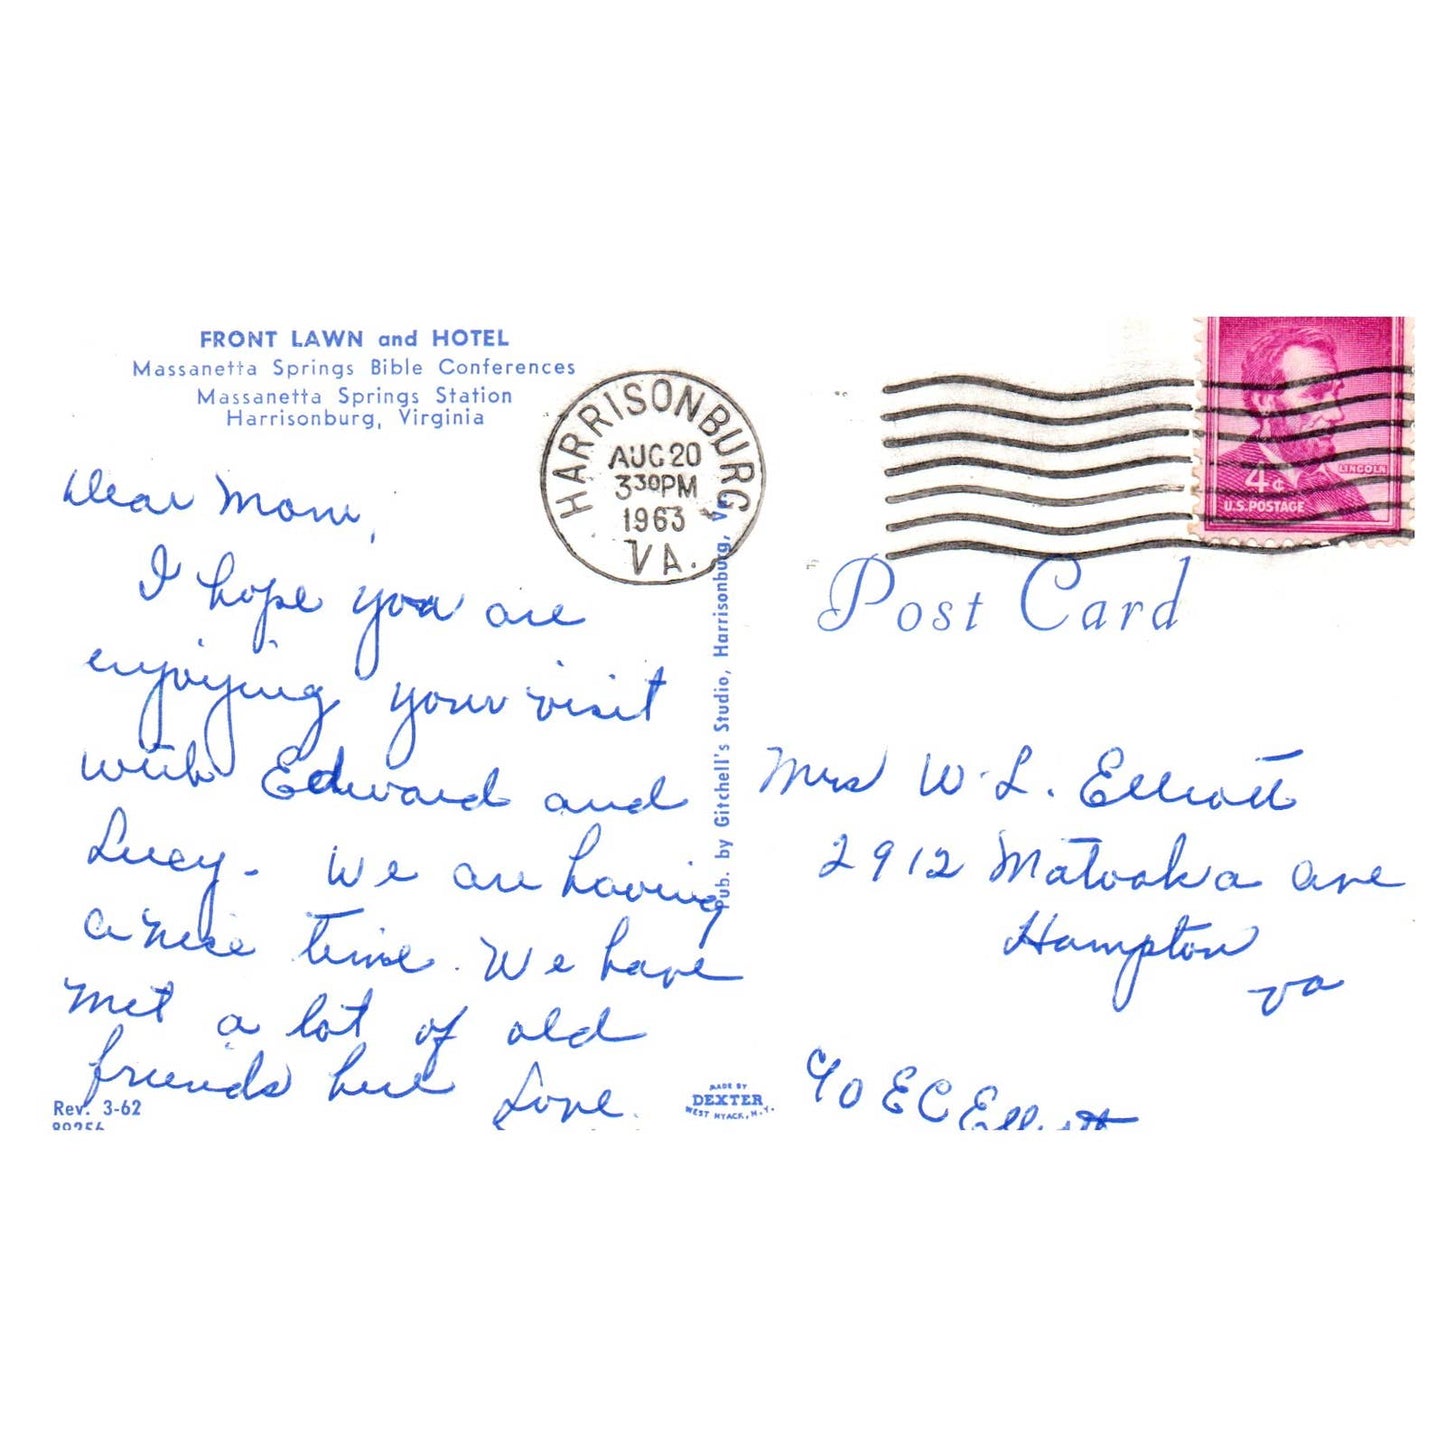 FRONT LAWN and HOTEL
Massanetta Springs Bible Conferences
Massanetta Springs Station
Harrisonburg, Virginia
HARRISONBURG
AUG 20
3 30 PM
1963
VA.
LINCOLN
4¢
U.S. POSTAGE
Post Card
Dear Mom,
I hope you are
enjoying your visit
with Edward and
Lucy - We are having
a nice time. We have
met a lot of old
friends here Love.
Pub. by Gitchell's Studio, Harrisonburg, Va.
Mrs W. L. Elliott
2912 Matoaka Ave
Hampton
Va
c/o E C Elliott
Rev. 3-62
MADE BY
DEXTER
WEST NYACK, N.Y.